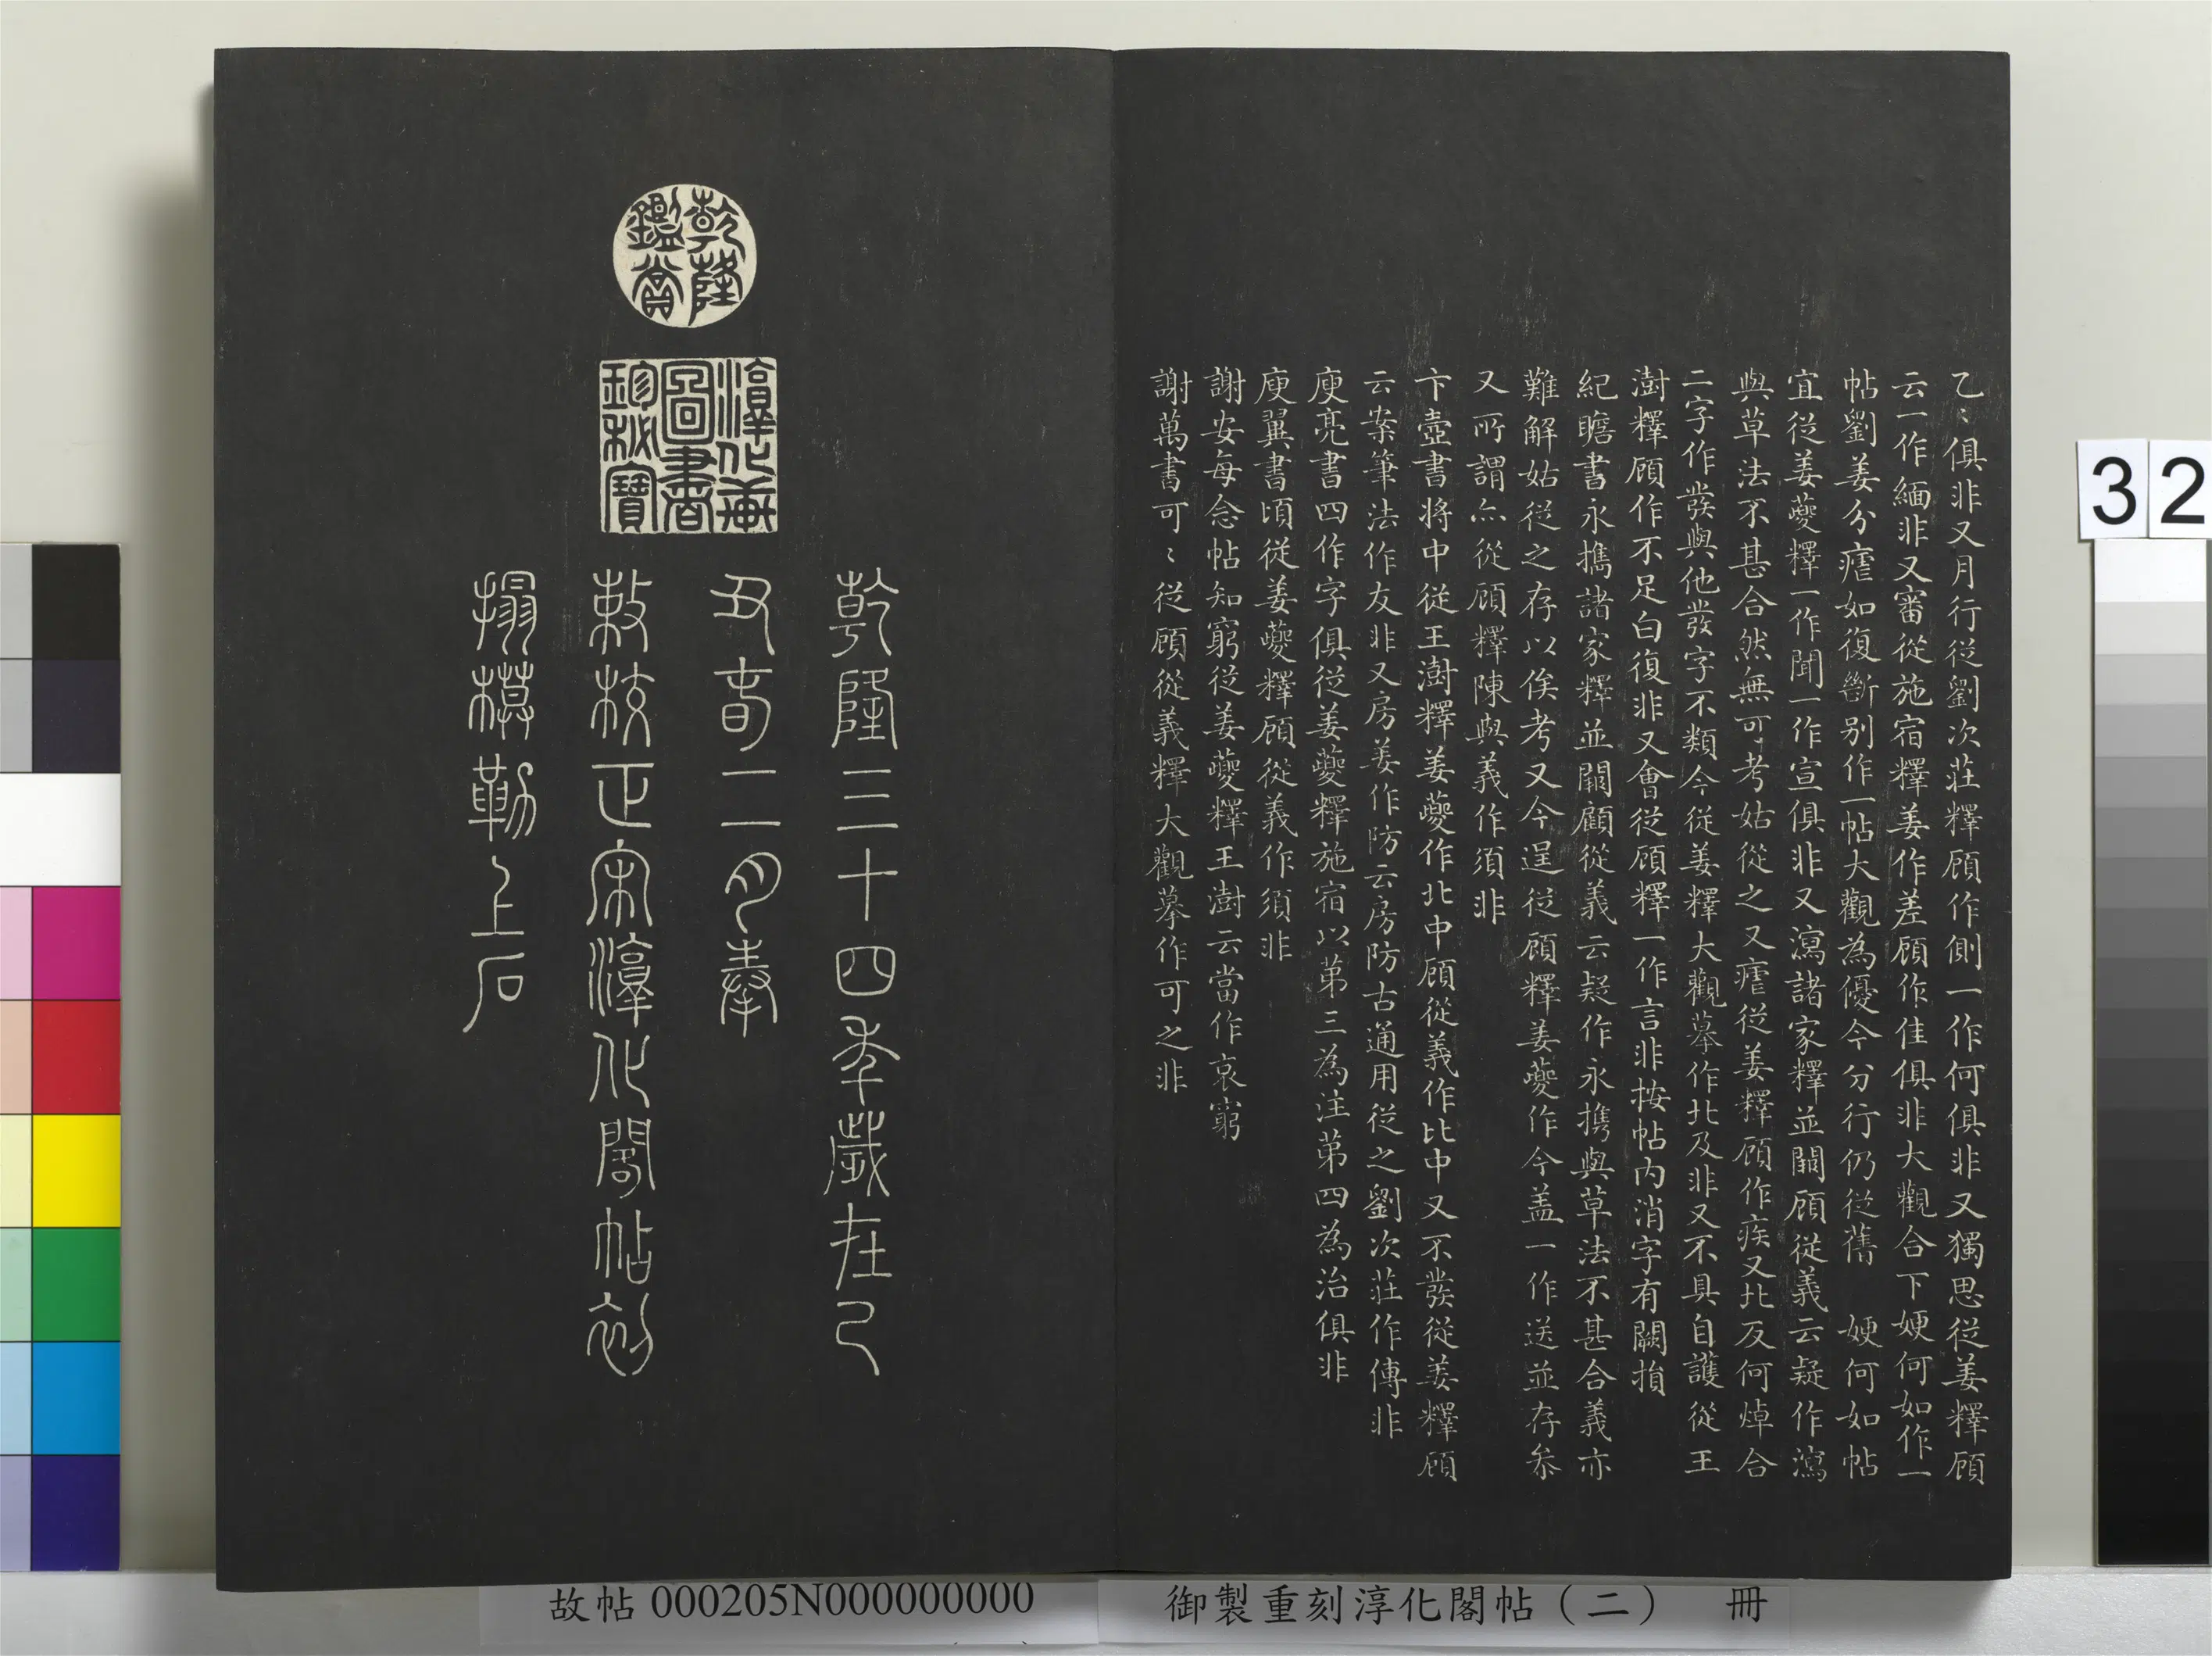 乙〻俱非又月行從劉次莊釋顧作側一作何俱非又獨思從姜釋顧
云一作緬非又審從施宿釋姜作差顧作佳俱非大觀合下㛐何如作一
帖劉姜分瘧如復斷別作一帖大觀為優今分行仍從舊　㛐何如帖
宜從姜夔釋一作聞一作宣俱非又瀉諸家釋並闕顧從義云疑作瀉
與草法不甚合然無可考姑從之又瘧從姜釋顧作疾又北反何焯合
二字作發與他發字不類今從姜釋大觀摹作北及非又不具自護從王
澍釋顧作不足白復非又會從顧釋一作言非按帖內消字有闕損
紀瞻書永㩦諸家釋並闕顧從義云疑作永携與草法不甚合義亦
難解姑從之存以俟考又今逞從顧釋姜夔作今盖一作送並存叅
又所謂点從顧釋陳與義作須非
卞壼書將中從王澍釋姜夔作北中顧從義作比中又不發從姜釋顧
云案筆法作友非又房姜作防云房防古通用從之劉次莊作傳非
庾亮書四作字俱從姜夔釋施宿以第三為注第四為治俱非
庾翼書頃從姜夔釋顧從義作須非
謝安每念帖知窮從姜夔釋王澍云當作哀窮
謝萬書可〻從顧從義釋大觀摹作可之非
乾隆鑑賞
淳化軒圖書珍秘寶
乾隆三十四年歲在己
丑春二月奉
敕校正宋淳化閣帖初
搨模勒上石
32
故帖 000205N000000000
御製重刻淳化閣帖（二）　冊